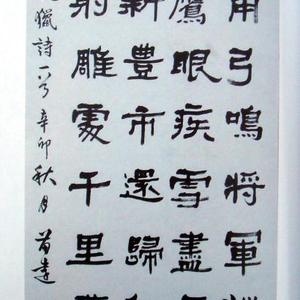 角弓鳴將軍獵
鷹眼疾雪盡
新豐市還歸
射雕處千里
獵詩一首辛卯秋月